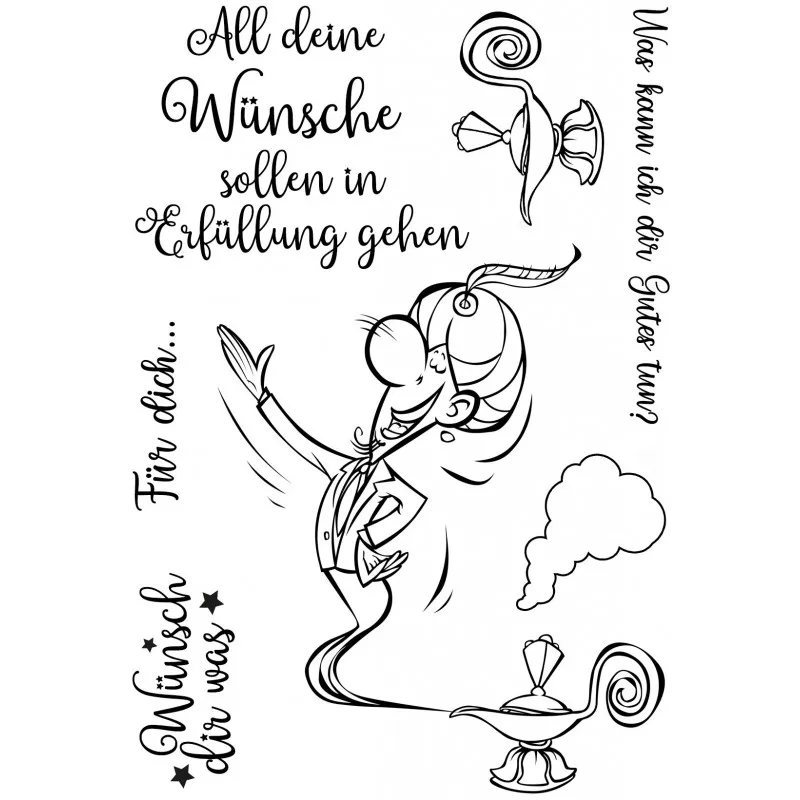 All deine
Wünsche
sollen in
Erfüllung gehen
Was kann ich dir Gutes tun?
Für dich...
Wünsch
dir was